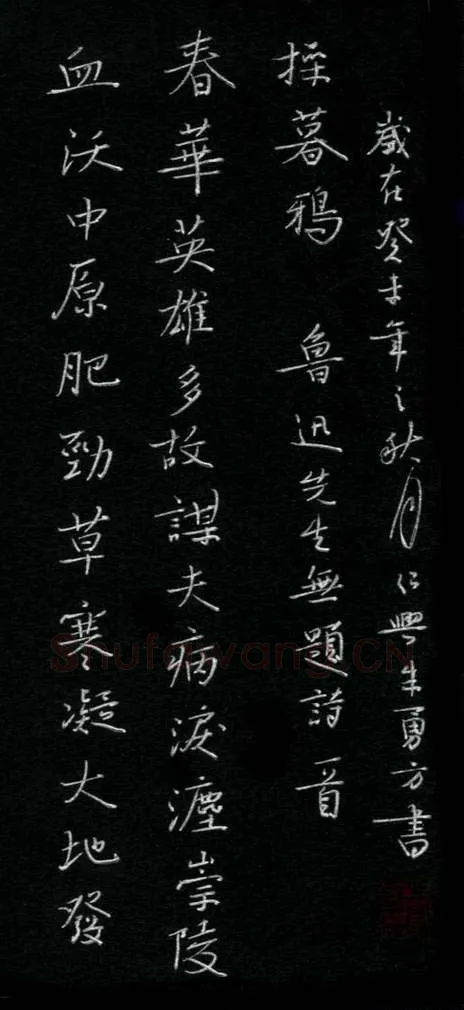 血沃中原肥勁草寒凝大地發
春華英雄多故謀夫病淚灑崇陵
操暮鴉 魯迅先生無題詩一首
歲在癸未年之秋月仁興朱勇方書
Shufawang.CN